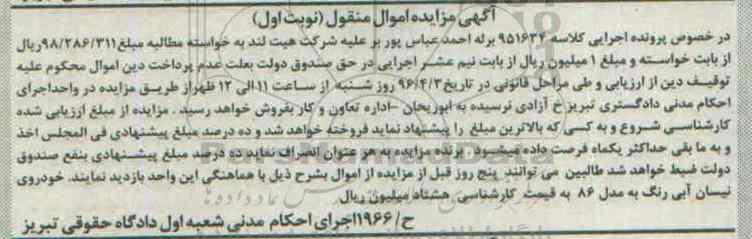 آگهی مزایده اموال منقول (نوبت اول)
در خصوص پرونده اجرایی کلاسه ۹۵۱۶۳۴ برله احمد عباس پور بر علیه شرکت هیت لند به خواسته مطالبه مبلغ ۹۸/۲۸۶/۳۱۱ ریال
از بابت خواسته و مبلغ ۱ میلیون ریال از بابت نیم عشر اجرایی در حق صندوق دولت بعلت عدم پرداخت دین اموال محکوم علیه
توقیف دین از ارزیابی و طی مراحل قانونی در تاریخ ۹۶/۴/۳ روز شنبه از ساعت ۱۱ الی ۱۲ ظهر از طریق مزایده در واحد اجرای
احکام مدنی دادگستری تبریز خ آزادی نرسیده به ابوریحان -اداره تعاون و کار بفروش خواهد رسید . مزایده از مبلغ ارزیابی شده
کارشناسی شروع و به کسی که بالاترین مبلغ را پیشنهاد نماید فروخته خواهد شد و ده درصد مبلغ پیشنهادی فی المجلس اخذ
و به ما بقی حداکثر یکماه فرصت داده میشود . برنده مزایده به هر عنوان انصراف نماید ده درصد مبلغ پیشنهادی بنفع صندوق
دولت ضبط خواهد شد طالبین می توانند پنج روز قبل از مزایده از اموال بشرح ذیل با هماهنگی این واحد بازدید نمایند. خودروی
نیسان آبی رنگ به مدل ۸۶ به قیمت کارشناسی هشتاد میلیون ریال
ح/۱۹۶۶ اجرای احکام مدنی شعبه اول دادگاه حقوقی تبریز